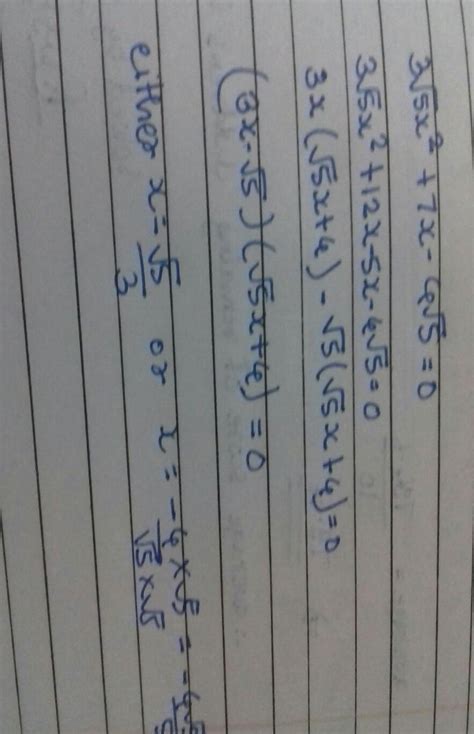 3√5x² + 7x - 4√5 = 0
3√5x² + 12x - 5x - 4√5 = 0
3x(√5x + 4) - √5(√5x + 4) = 0
(3x - √5)(√5x + 4) = 0
either x = √5/3 or x = -4×√5/√5×√5 = -4√5/5